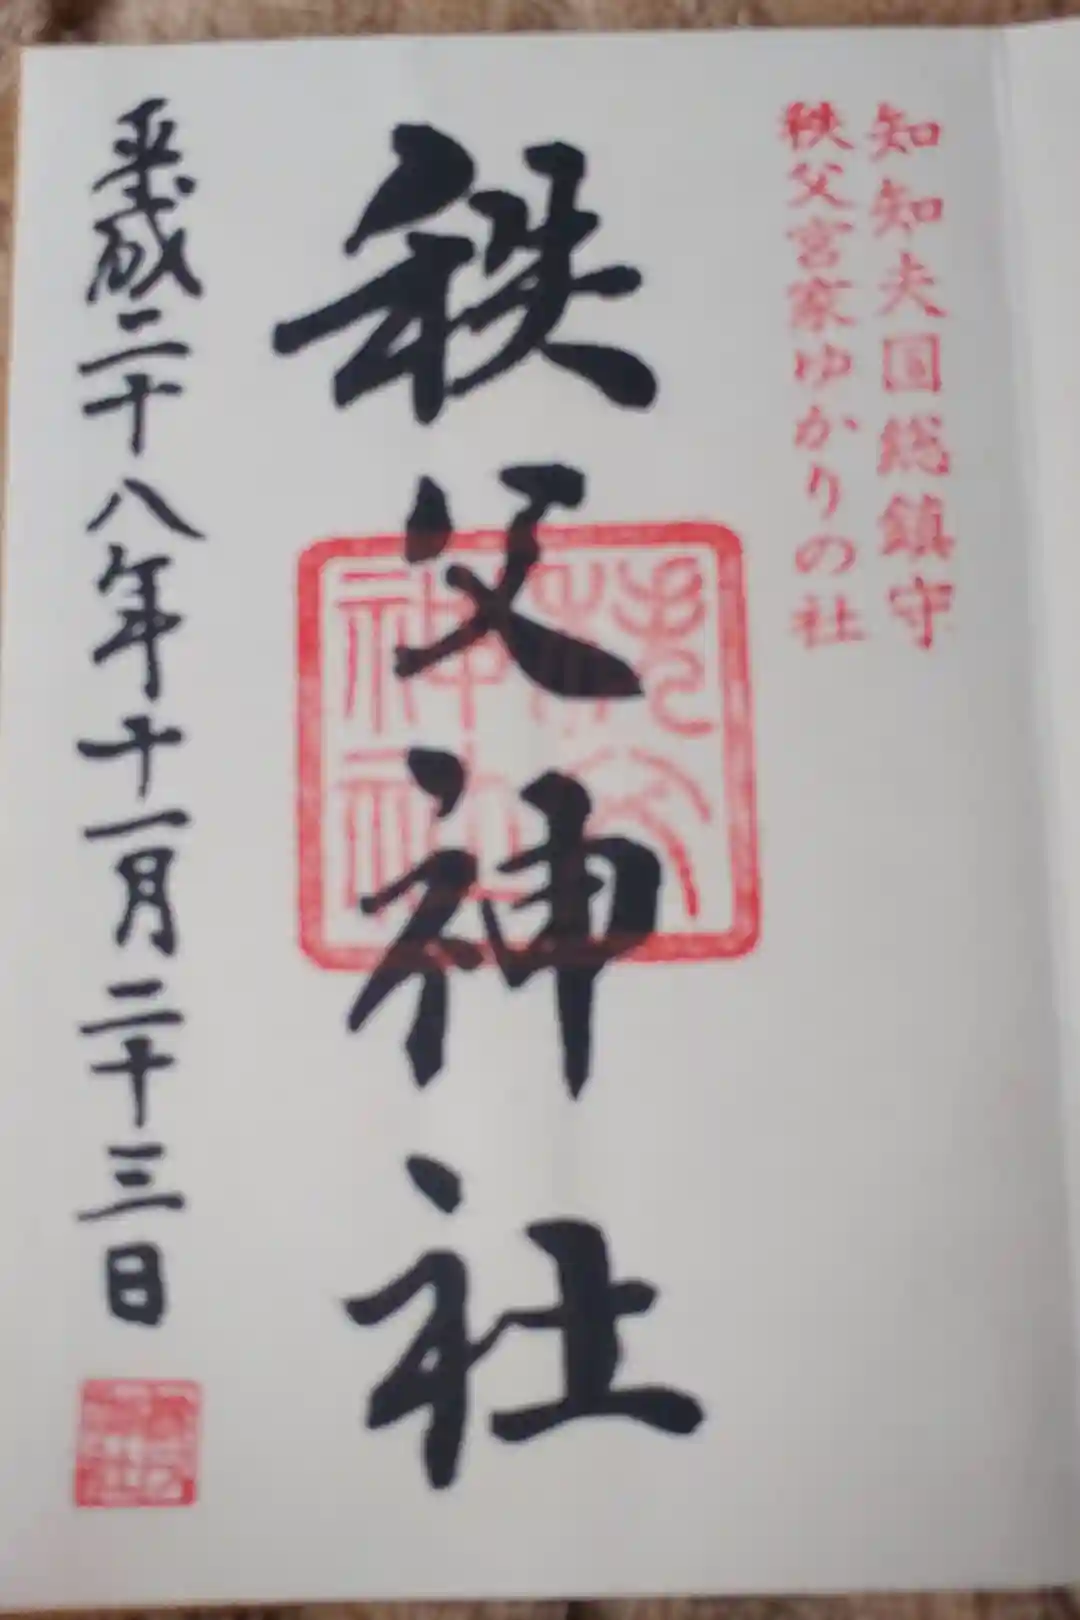 知知夫国総鎮守
秩父宮家ゆかりの社
秩父神社
秩父
神社
平成二十八年十一月二十三日